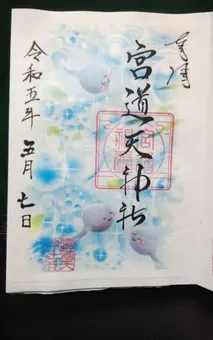 奉拝
宮道天神社
令和五年 五月七日